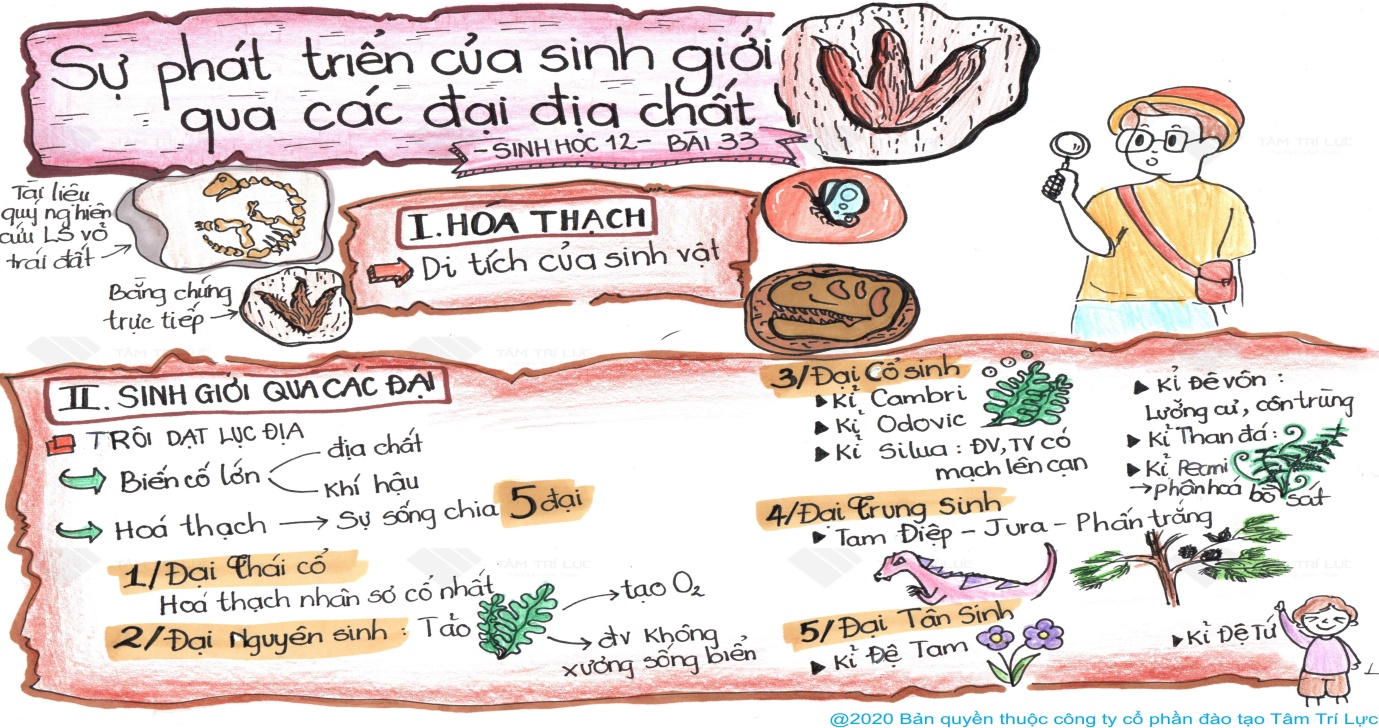 Sự phát triển của sinh giới
qua các đại địa chất
- SINH HỌC 12 - BÀI 33
Tài liệu
quý nghiên
cứu LS vỏ
trái đất
Bằng chứng
trực tiếp
I. HÓA THẠCH
Di tích của sinh vật
II. SINH GIỚI QUA CÁC ĐẠI
TRÔI DẠT LỤC ĐỊA
Biến cố lớn
địa chất
khí hậu
Hoá thạch → Sự sống chia 5 đại
1/ Đại Thái cổ
Hoá thạch nhân sơ cổ nhất
2/ Đại Nguyên sinh : Tảo
→ tạo O₂
→ đv không
xương sống biển
3/ Đại Cổ sinh
Kỉ Cambri
Kỉ Odovic
Kỉ Silua : ĐV, TV có
mạch lên cạn
Kỉ Đêvôn :
Lưỡng cư, côn trùng
Kỉ Than đá :
Kỉ Pecmi
→ phân hoá bò sát
4/ Đại Trung Sinh
Tam Điệp - Jura - Phấn trắng
5/ Đại Tân Sinh
Kỉ Đệ Tam
Kỉ Đệ Tứ
TÂM TRÍ LỰC
TÂM TRÍ LỰC
TÂM TRÍ LỰC
TÂM TRÍ LỰC
@2020 Bản quyền thuộc công ty cổ phần đào tạo Tâm Trí Lực